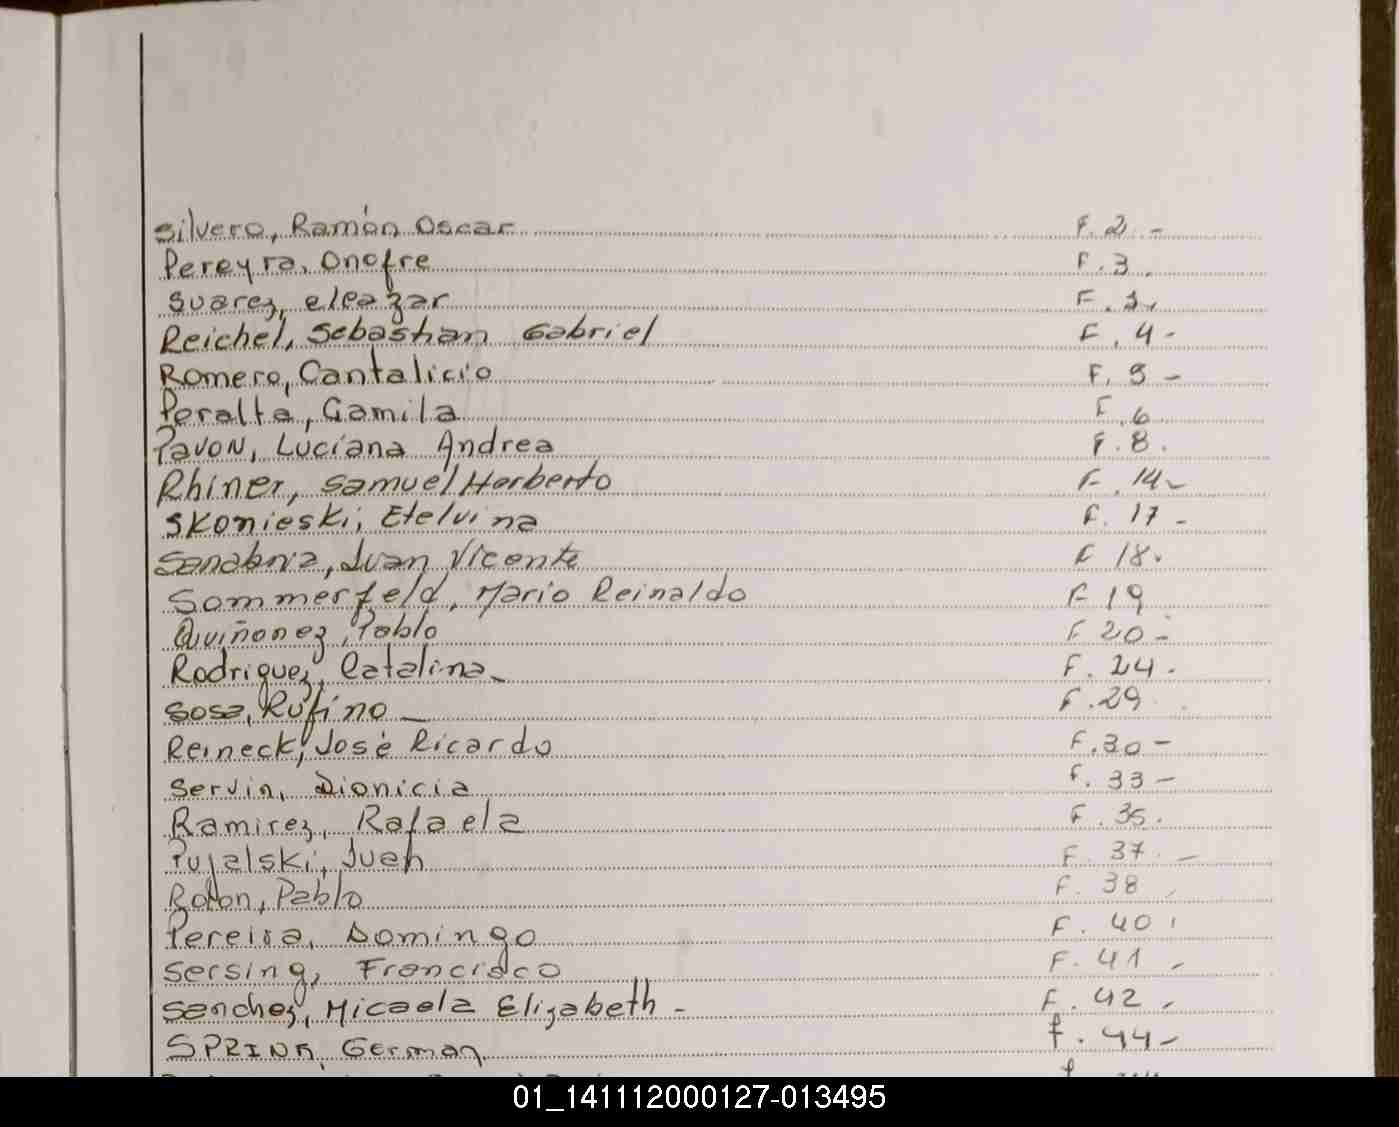 Silvero, Ramón Oscar F. 2.-
Pereyra, Onofre F. 3.
Suarez, eleazar F. 3.
Reichel, Sebastian Gabriel F. 4-
Romero, Cantalicio F. 5-
Peralta, Camila F. 6
Pavon, Luciana Andrea F. 8.
Rhiner, Samuel Herberto F. 14-
Skonieski, Etelvina F. 17-
Sanabria, Juan Vicente F 18.
Sommerfeld, Mario Reinaldo F 19
Quiñonez, Pablo F 20-
Rodriguez, Catalina- F. 24.
Sosa, Rufino- F. 29
Reineck, José Ricardo F. 30-
Servin, Dionicia F. 33-
Ramirez, Rafaela F. 35.
Pujalski, Juan F. 37.-
Rolon, Pablo F. 38
Pereira, Domingo F. 40
Sersing, Francisco F. 41-
Sanchez, Micaela Elizabeth- F. 42-
German f. 44-
01_141112000127-013495